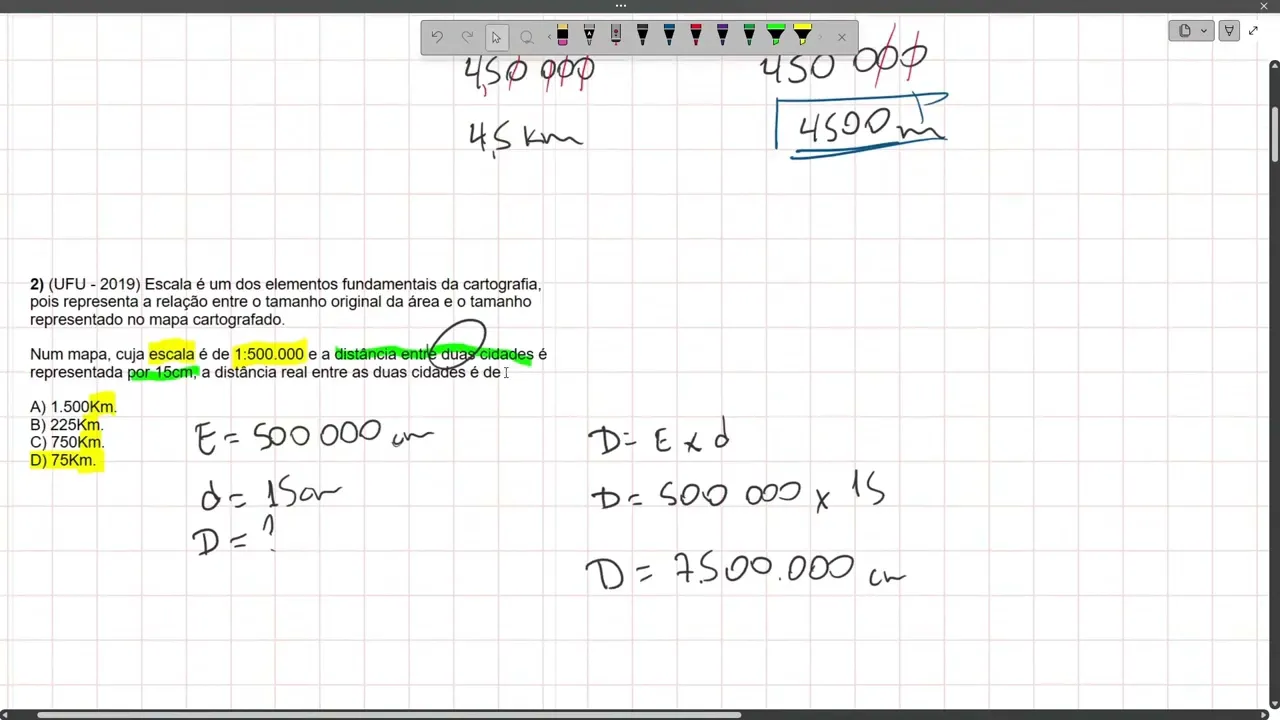 450 000
4,5 km
450 000
4500 m
2) (UFU - 2019) Escala é um dos elementos fundamentais da cartografia,
pois representa a relação entre o tamanho original da área e o tamanho
representado no mapa cartografado.
Num mapa, cuja escala é de 1:500.000 e a distância entre duas cidades é
representada por 15cm, a distância real entre as duas cidades é de
A) 1.500Km.
B) 225Km.
C) 750Km.
D) 75Km.
E = 500 000 cm
d = 15cm
D = ?
D = E x d
D = 500 000 x 15
D = 7.500.000 cm